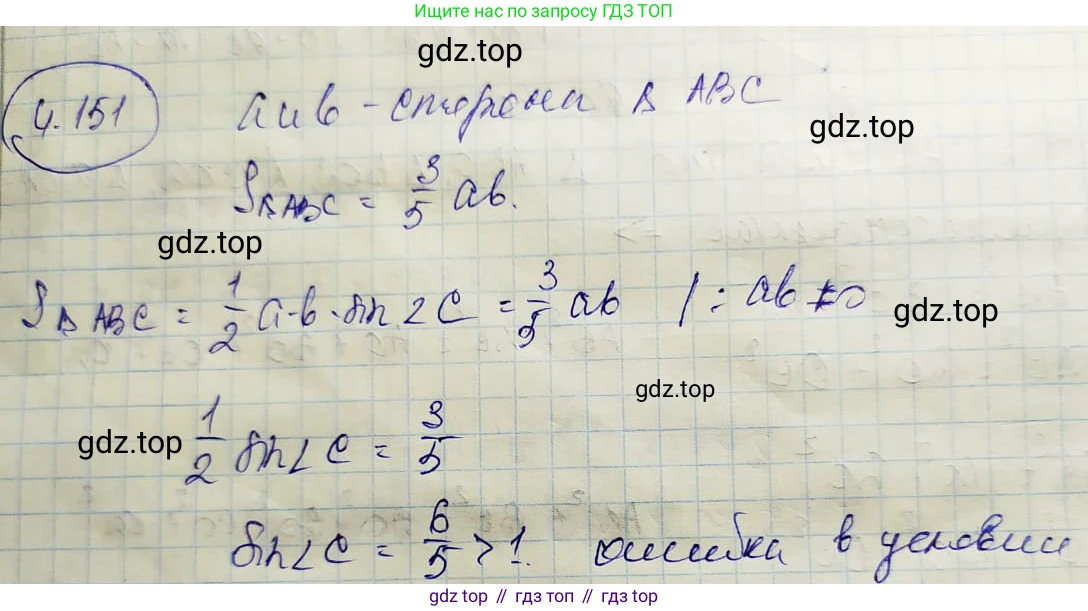 Ищите нас по запросу ГДЗ ТОП
gdz.top
4.151 a и b - стороны Δ ABC
gdz.top
SΔABC = 3/5 ab.
gdz.top
SΔABC = 1/2 a·b·sin∠C = 3/5 ab | : ab ≠ 0
gdz.top
gdz.top
gdz.top 1/2 sin∠C = 3/5
sin∠C = 6/5 > 1. ошибка в условии
gdz top // гдз топ // гдз top